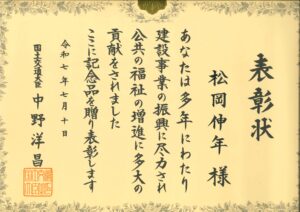 表彰状
松岡伸年 様
あなたは多年にわたり
建設事業の振興に尽力され
公共の福祉の増進に多大の
貢献をされました
ここに記念品を贈り表彰します
令和七年七月十日
国土交通大臣 中野洋昌